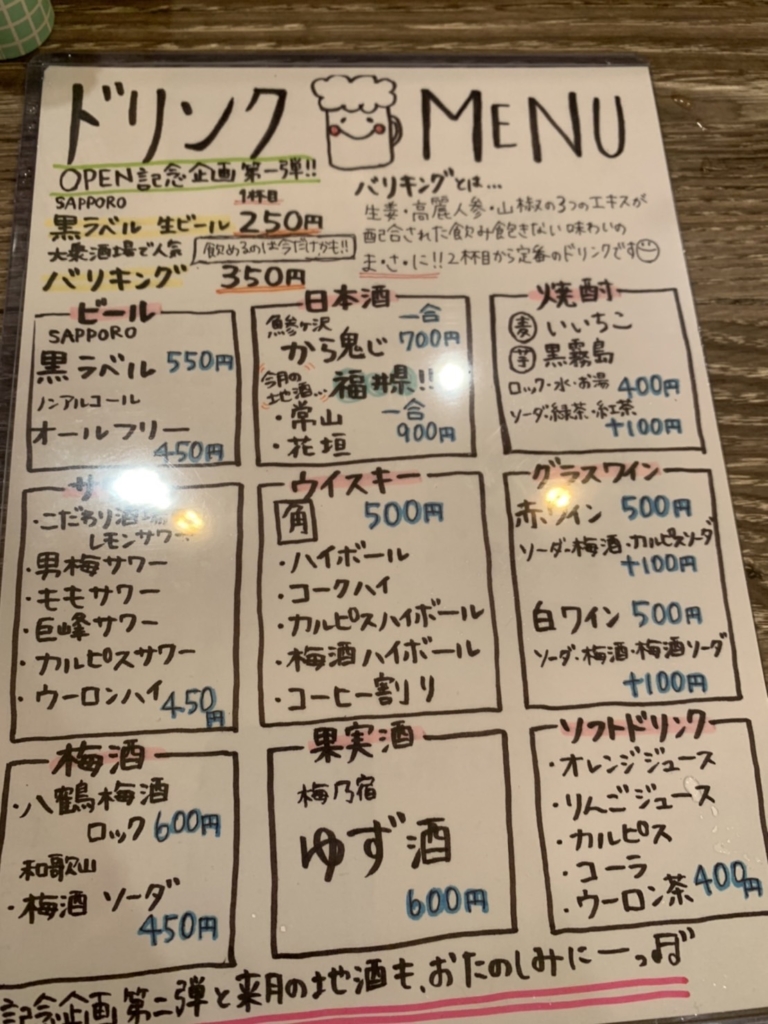 ドリンク MENU
OPEN記念企画第一弾!!
SAPPORO 1杯目
黒ラベル 生ビール 250円
大衆酒場で人気 飲めるのは今だけかも!!
バリキング 350円
バリキングとは...
生姜・高麗人参・山椒の3つのエキスが
配合された飲み飽きない味わいの
ま・さ・に!! 2杯目から定番のドリンクです
ビール
SAPPORO
黒ラベル 550円
ノンアルコール
オールフリー
450円
日本酒
鯵ヶ沢 一合
から鬼じ 700円
今月の
地酒... 福井県!!
・常山 一合
・花垣 900円
焼酎
麦 いいちこ
芋 黒霧島
ロック・水・お湯 400円
ソーダ・緑茶・紅茶
+100円
・こだわり酒場
レモンサワー
・男梅サワー
・ももサワー
・巨峰サワー
・カルピスサワー
・ウーロンハイ 450円
ウイスキー
角 500円
・ハイボール
・コークハイ
・カルピスハイボール
・梅酒ハイボール
・コーヒー割り
グラスワイン
赤ワイン 500円
ソーダ・梅酒・カルピスソーダ
+100円
白ワイン 500円
ソーダ・梅酒・梅酒ソーダ
+100円
梅酒
・八鶴梅酒
ロック 600円
和歌山
・梅酒 ソーダ
450円
果実酒
梅乃宿
ゆず酒
600円
ソフトドリンク
・オレンジジュース
・りんごジュース
・カルピス
・コーラ
・ウーロン茶 400円
記念企画第二弾と来月の地酒も、おたのしみにーっ